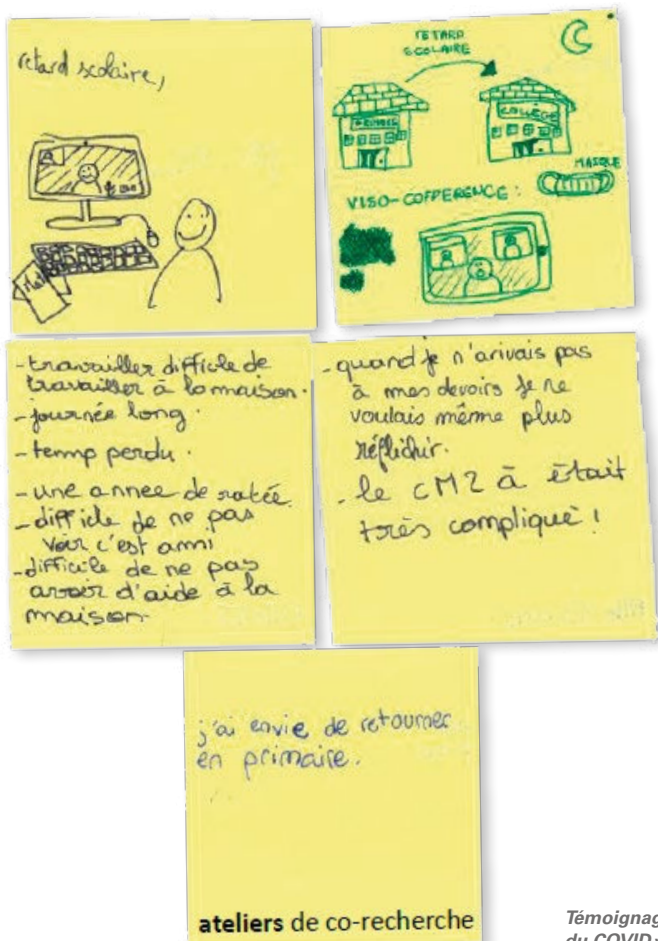 retard scolaire,
RETARD
SCOLAIRE
COLLÉGE
MASQUE
VISO-COFPERENCE :
-travailler difficile de
travailler à la maison.
-journée long.
-temp perdu.
-une annee de ratée.
-difficle de ne pas
voir c'est ammi
-difficile de ne pas
avoir d'aide à la
maison
-quand je n'arivais pas
à mes devoirs je ne
voulais même plus
réflichir.
-le CM2 à était
très compliqué !
j'ai envie de retourner
en primaire.
ateliers de co-recherche
Témoignag
du COVID